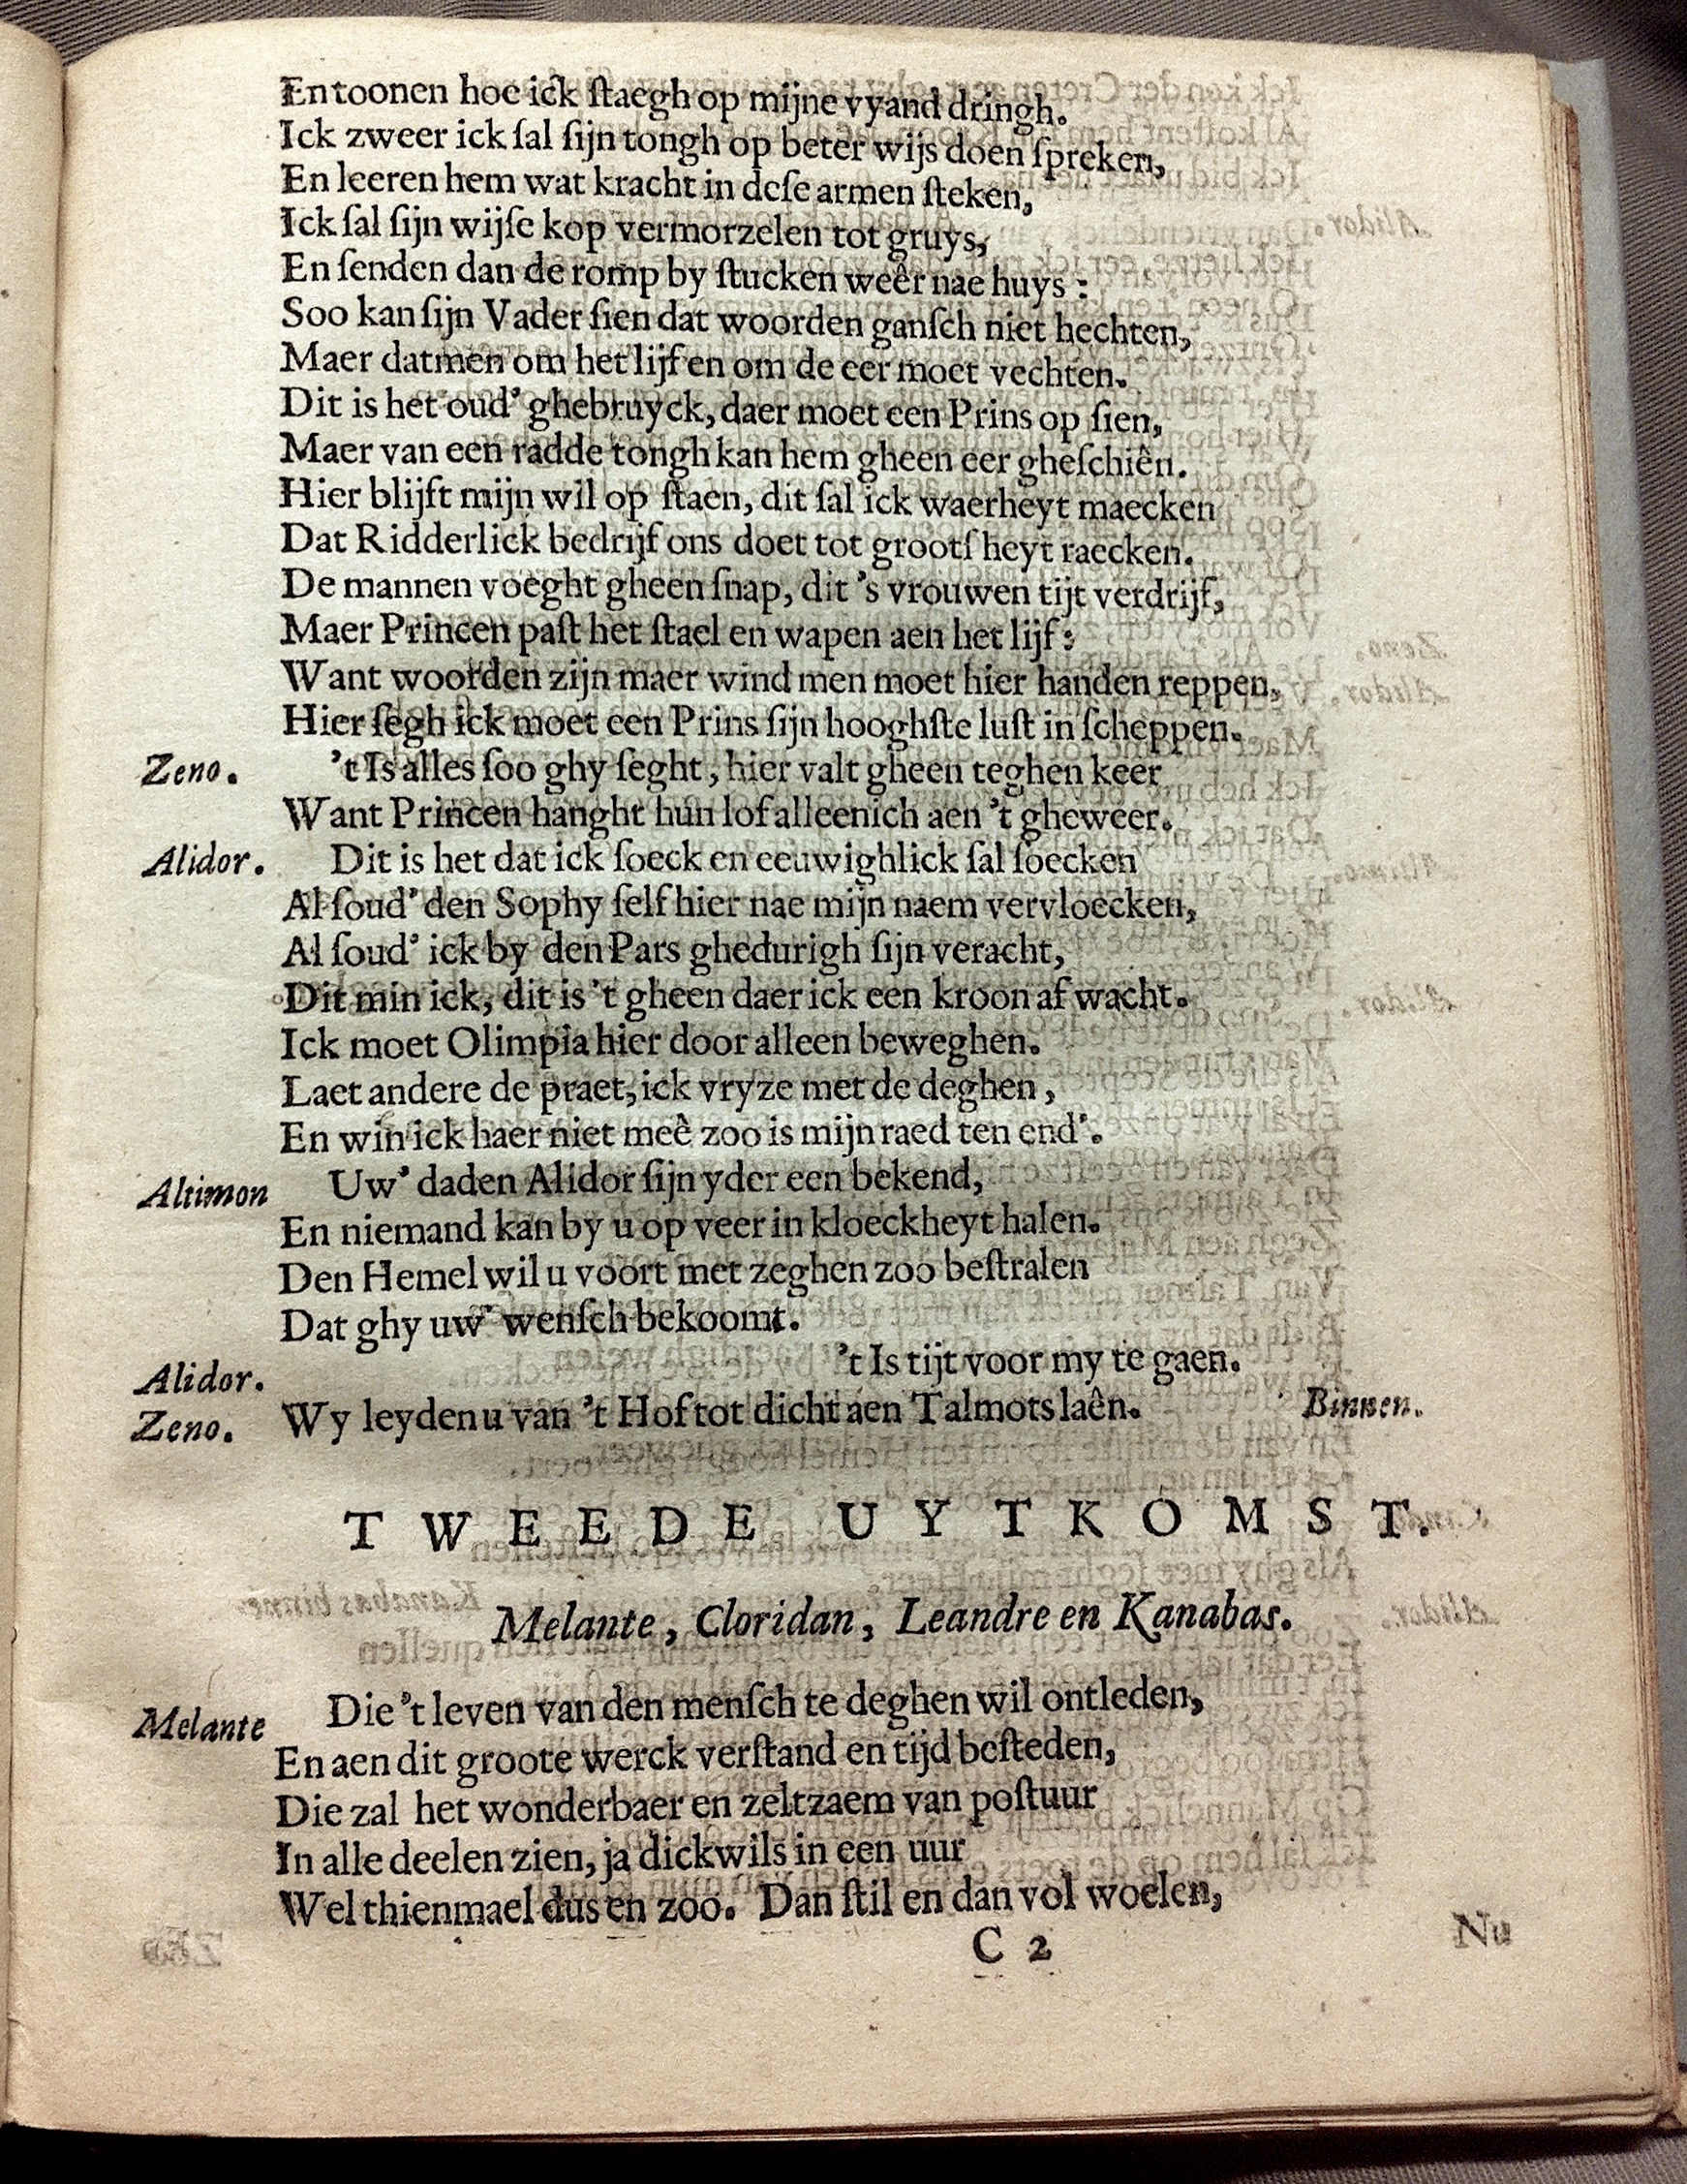 En toonen hoe ick ſtaegh op mijne vyand dringh.
Ick zweer ick ſal ſijn tongh op beter wijs doen ſpreken,
En leeren hem wat kracht in deſe armen ſteken,
Ick ſal ſijn wijſe kop vermorzelen tot gruys,
En ſenden dan de romp by ſtucken weêr nae huys :
Soo kan ſijn Vader ſien dat woorden ganſch niet hechten,
Maer datmen om het lijf en om de eer moet vechten.
Dit is het oud' ghebruyck, daer moet een Prins op ſien,
Maer van een radde tongh kan hem gheen eer gheſchiên.
Hier blijft mijn wil op ſtaen, dit ſal ick waerheyt maecken
Dat Ridderlick bedrijf ons doet tot grootſheyt raecken.
De mannen voeght gheen ſnap, dit 's vrouwen tijt verdrijf,
Maer Princen paſt het ſtael en wapen aen het lijf :
Want woorden zijn maer wind men moet hier handen reppen,
Hier ſegh ick moet een Prins ſijn hooghſte luſt in ſcheppen.
Zeno. 't Is alles ſoo ghy ſeght, hier valt gheen teghen keer
Want Princen hanght hun lof alleenich aen 't gheweer.
Alidor. Dit is het dat ick ſoeck en eeuwighlick ſal ſoecken
Al ſoud' den Sophy ſelf hier nae mijn naem vervloecken,
Al ſoud' ick by den Pars ghedurigh ſijn veracht,
Dit min ick, dit is 't gheen daer ick een kroon af wacht.
Ick moet Olimpia hier door alleen beweghen.
Laet andere de praet, ick vryze met de deghen,
En win ick haer niet meê zoo is mijn raed ten end'.
Altimon Uw' daden Alidor ſijn yder een bekend,
En niemand kan by u op veer in kloeckheyt halen.
Den Hemel wil u voort met zeghen zoo beſtralen
Dat ghy uw' wenſch bekoomt.
Alidor. 't Is tijt voor my te gaen.
Zeno. Wy leyden u van 't Hof tot dicht aen Talmots laên. Binnen.
TWEEDE UYTKOMST.
Melante, Cloridan, Leandre en Kanabas.
Melante Die 't leven van den menſch te deghen wil ontleden,
En aen dit groote werck verſtand en tijd beſteden,
Die zal het wonderbaer en zeltzaem van poſtuur
In alle deelen zien, ja dickwils in een uur
Wel thienmael dus en zoo. Dan ſtil en dan vol woelen,
C 2 Nu